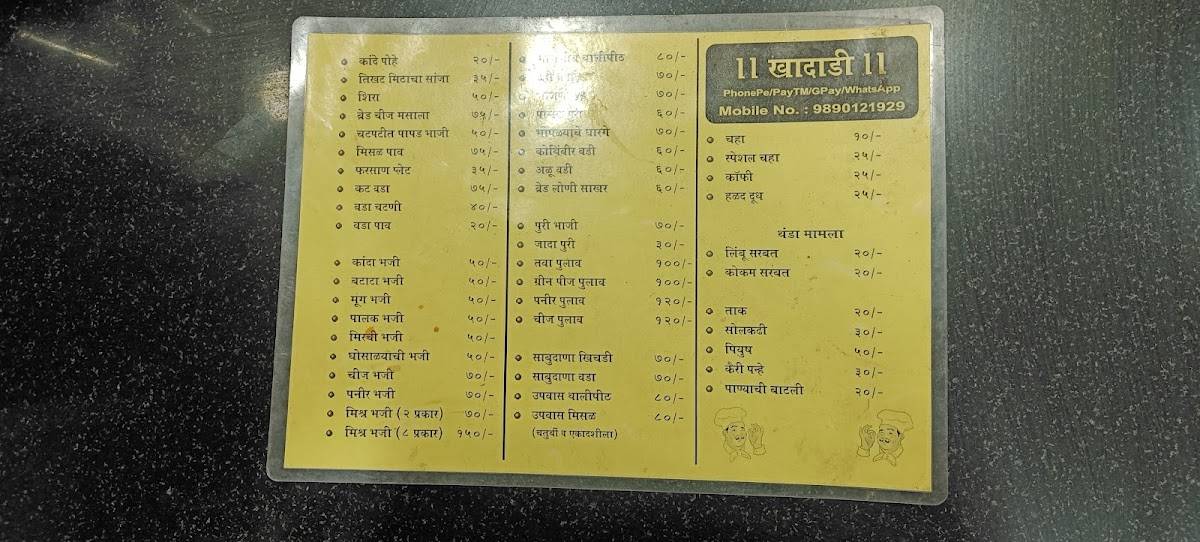 कांदे पोहे २०/-
तिखट मिठाचा सांजा ३५/-
शिरा ५०/-
ब्रेड चीज मसाला ७५/-
चटपटीत पापड भाजी ५०/-
मिसळ पाव ७५/-
फरसाण प्लेट ३५/-
कट वडा ७५/-
वडा चटणी ४०/-
वडा पाव २०/-
कांदा भजी ५०/-
बटाटा भजी ५०/-
मूग भजी ५०/-
पालक भजी ५०/-
मिरची भजी ५०/-
घोसाळयाची भजी ५०/-
चीज भजी ७०/-
पनीर भजी ७०/-
मिश्र भजी (२ प्रकार) ७०/-
मिश्र भजी (८ प्रकार) १५०/-
थालीपीठ ८०/-
७०/-
७०/-
पुरी ६०/-
भोपळ्याचे घारगे ७०/-
कोथिंबीर वडी ६०/-
अळू वडी ६०/-
ब्रेड लोणी साखर ६०/-
पुरी भाजी ७०/-
जादा पुरी ३०/-
तवा पुलाव १००/-
ग्रीन पीज पुलाव १००/-
पनीर पुलाव १२०/-
चीज पुलाव १२०/-
साबुदाणा खिचडी ७०/-
साबुदाणा वडा ७०/-
उपवास थालीपीट ८०/-
उपवास मिसळ ८०/-
(चतुर्थी व एकादशीला)
।। खादाडी ।।
PhonePe/PayTM/GPay/WhatsApp
Mobile No. : 9890121929
चहा १०/-
स्पेशल चहा २५/-
कॉफी २५/-
हळद दूध २५/-
थंडा मामला
लिंबू सरबत २०/-
कोकम सरबत २०/-
ताक २०/-
सोलकढी ३०/-
पियुष ५०/-
कैरी पन्हे ३०/-
पाण्याची बाटली २०/-